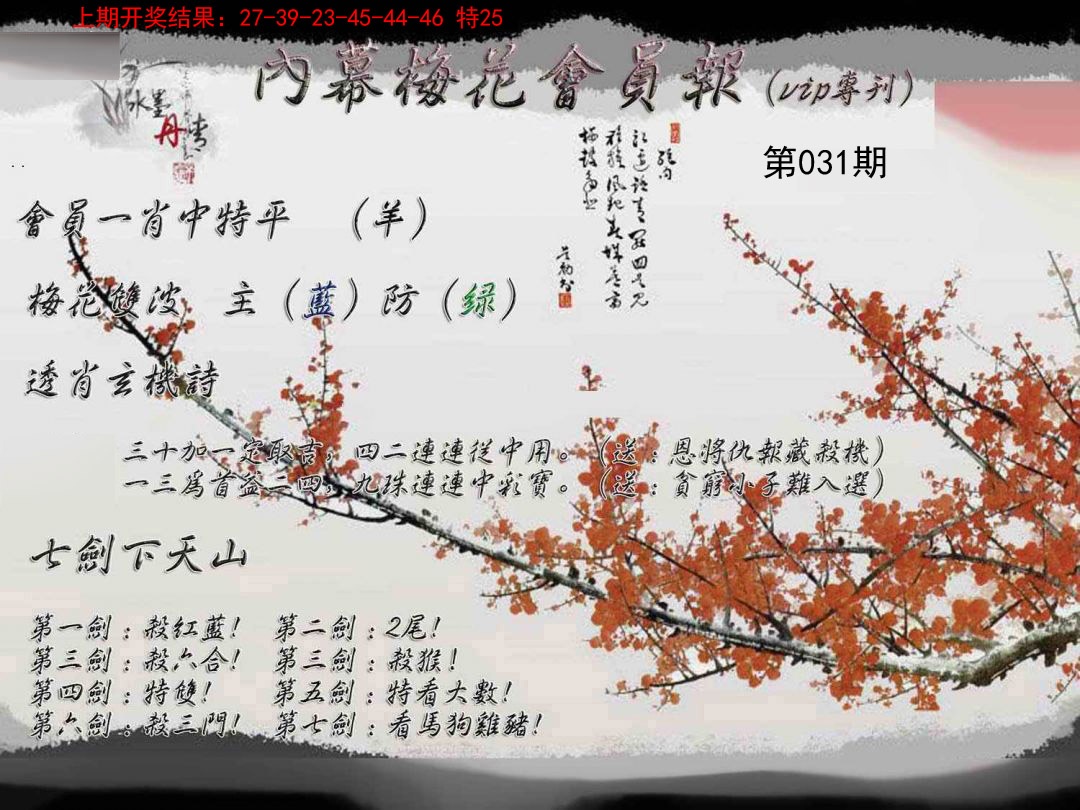 上期开奖结果：27-39-23-45-44-46 特25
內幕梅花會員報（vip專刊）
水墨
丹青
第031期
會員一肖中特平　（羊）
梅花雙波　主（藍）防（绿）
透肖玄機詩
三十加一定取吉，四二連連從中用。（送：恩將仇報藏殺機）
一三爲首盃二四，九珠連連中彩寶。（送：貧窮小子難入選）
七劍下天山
第一劍：殺红藍！　第二劍：2尾！
第三劍：殺六合！　第三劍：殺猴！
第四劍：特雙！　第五劍：特看大數！
第六劍：殺三門！　第七劍：看馬狗雞豬！